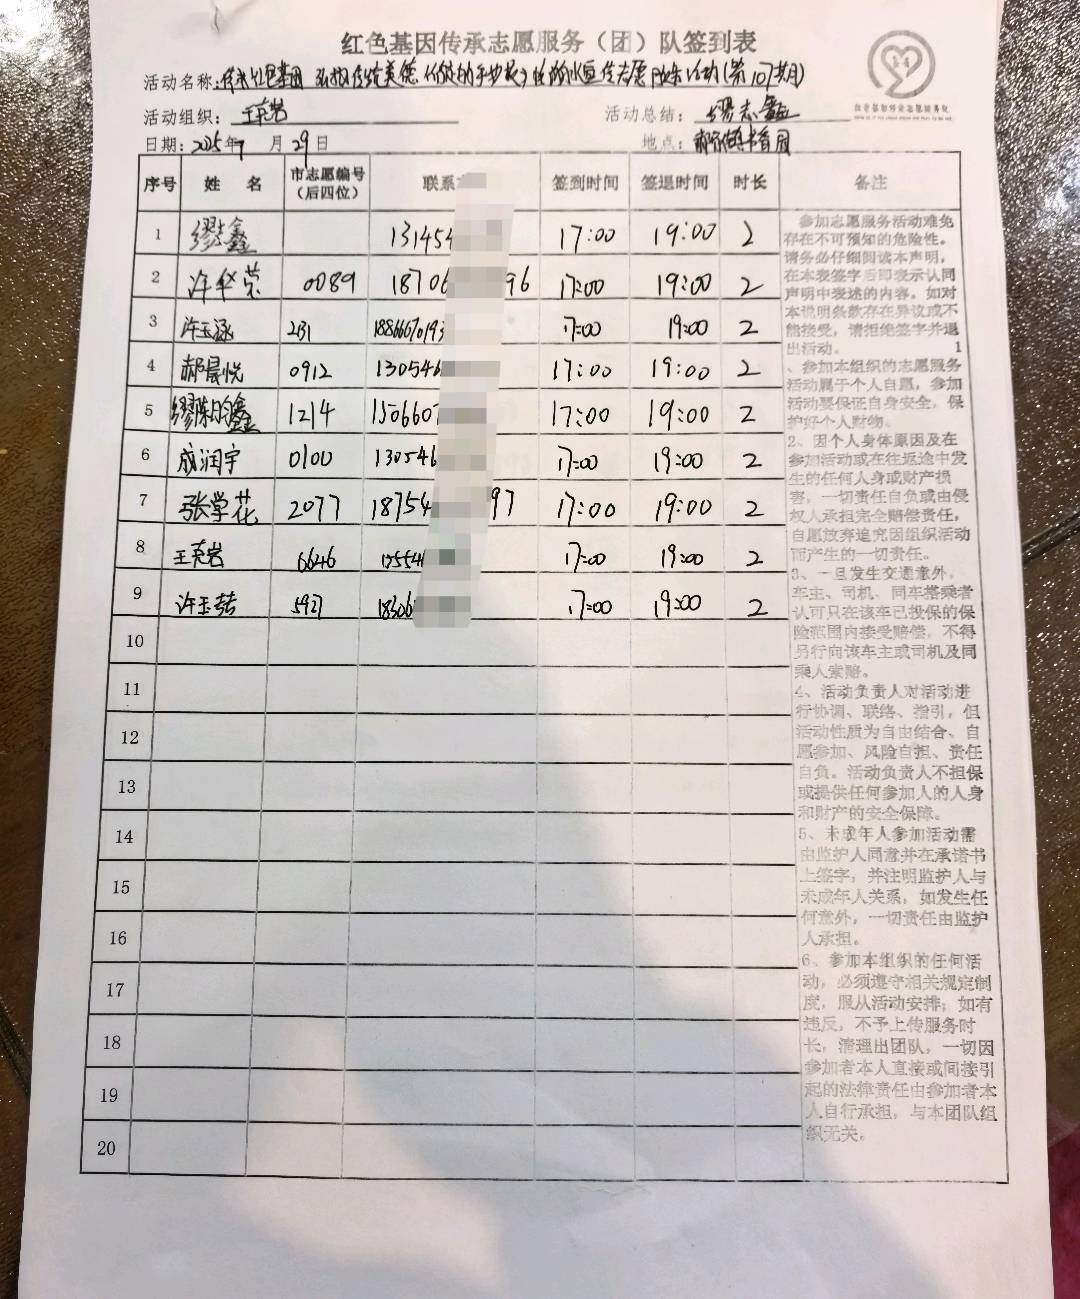 红色基因传承志愿服务（团）队签到表
活动名称：传承红色基因 弘扬传统美德
活动组织：王英岩
活动总结：缪志鑫
日期：2025年7月29日
地点：
序号 姓 名 市志愿编号（后四位） 联系 签到时间 签退时间 时长 备注
1 131454 17:00 19:00 2
2 许华荣 0089 18706 96 17:00 19:00 2
3 许玉涵 2131 1886667019 17:00 19:00 2
4 郝晨悦 0912 130546 17:00 19:00 2
5 1214 1506607 17:00 19:00 2
6 成润宇 0100 130546 17:00 19:00 2
7 张学花 2077 18754 97 17:00 19:00 2
8 王英岩 6646 155546 17:00 19:00 2
9 许玉喆 5927 18306 17:00 19:00 2
10
11
12
13
14
15
16
17
18
19
20
参加志愿服务活动难免
存在不可预知的危险性。
请务必仔细阅读本声明，
在本表签字后即表示认同
声明中表述的内容。如对
本说明条款存在异议或不
能接受，请拒绝签字并退
出活动。 1
、参加本组织的志愿服务
活动属于个人自愿，参加
活动要保证自身安全，保
护好个人财物。
2、因个人身体原因及在
参加活动或在往返途中发
生的任何人身或财产损
害，一切责任自负或由侵
权人承担完全赔偿责任，
自愿放弃追究因组织活动
而产生的一切责任。
3、一旦发生交通意外，
车主、司机、同车搭乘者
认可只在该车已投保的保
险范围内接受赔偿，不得
另行向该车主或司机及同
乘人索赔。
4、活动负责人对活动进
行协调、联络、指引，但
活动性质为自由结合、自
愿参加、风险自担、责任
自负。活动负责人不担保
或提供任何参加人的人身
和财产的安全保障。
5、未成年人参加活动需
由监护人同意并在承诺书
上签字，并注明监护人与
未成年人关系，如发生任
何意外，一切责任由监护
人承担。
6、参加本组织的任何活
动，必须遵守相关规定制
度，服从活动安排；如有
违反，不予上传服务时
长，清理出团队，一切因
参加者本人直接或间接引
起的法律责任由参加者本
人自行承担，与本团队组
织无关。